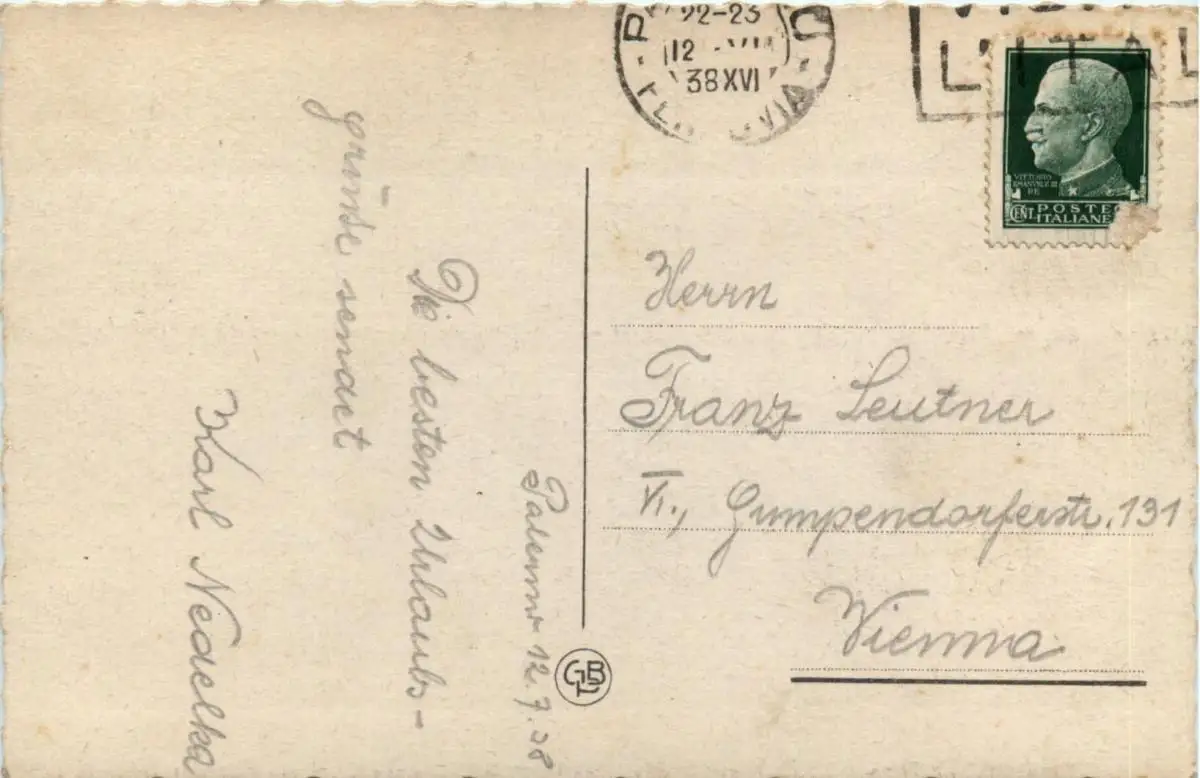 Palermo 12.7.38
Die besten Urlaubs-
grüsse sendet
Karl Nedelka
22-23
12 VII
38 XVI
L'ITAL
VITTORIO
EMANVELE III
RE
CENT.
POSTE
ITALIANE
Herrn
Franz Leutner
VI., Gumpendorferstr. 131
Vienna
GBL